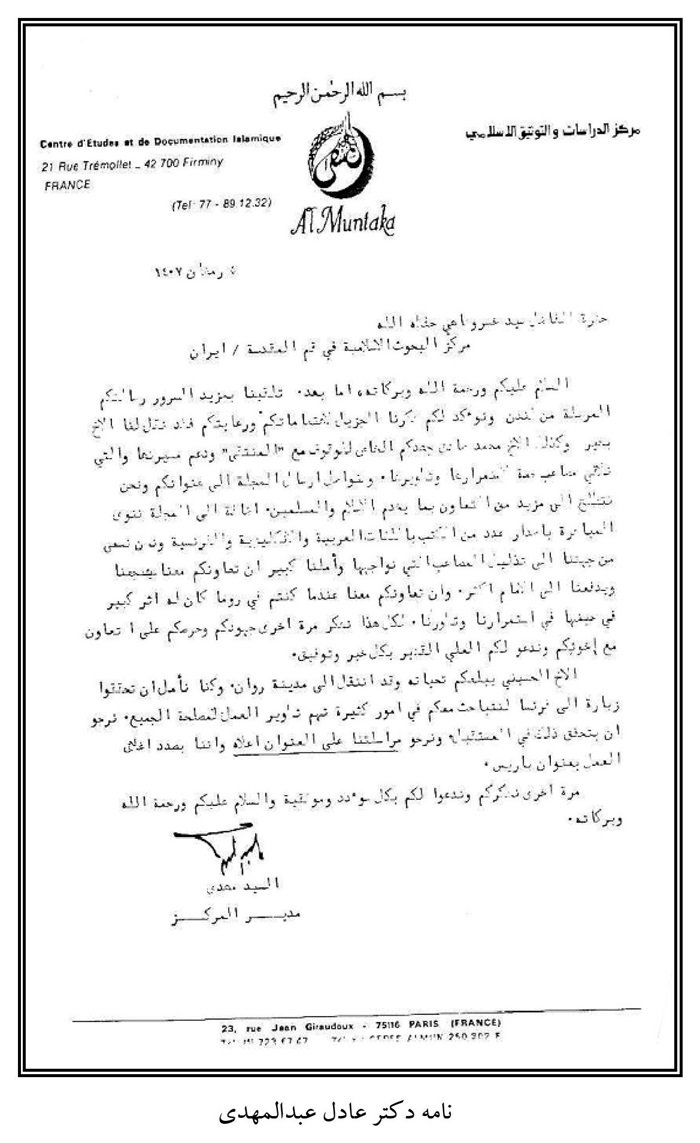 بسم الله الرحمن الرحيم
Centre d'Etudes et de Documentation Islamique
21 Rue Trémollet _ 42 700 Firminy
FRANCE
(Tel: 77 - 89 12.32)
مركز الدراسات والتوثيق الاسلامي
المنتقى
Al Muntaka
رمضان ١٤٠٧
الفاضل سيد خسروشاهي حفظه الله
مركز البحوث الاسلامية في قم المقدسة / ايران
السلام عليكم ورحمة الله وبركاته، اما بعد. تلقينا بمزيد السرور رسالتكم
المرسلة من لندن ونؤكد لكم شكرنا الجزيل لاهتماماتكم ورعايتكم فقد نقل لنا الاخ
بشير وكذلك الاخ محمد صادق جهدكم الخاص للوقوف مع "المنتقى" ودعم مسيرتها والتي
تلاقي مصاعب جمة لاستمرارها وتطويرها. وسنواصل ارسال المجلة الى عنوانكم ونحن
نتطلع الى مزيد من التعاون بما يخدم الاسلام والمسلمين. اضافة الى المجلة ننوي
المباشرة باصدار عدد من الكتب باللغات العربية والانكليزية والفرنسية ونحن نسعى
من جهتنا الى تذليل المصاعب التي نواجهها وأملنا كبير ان تعاونكم معنا يشجعنا
ويدفعنا الى الامام اكثر. وان تعاونكم معنا عندما كنتم في روما كان له اثر كبير
في حينها في استمرارنا وتطورنا. لكل هذا نشكر مرة اخرى جهودكم وحرصكم على التعاون
مع إخوتكم وندعو لكم العلي القدير بكل خير وتوفيق.
الاخ الحسيني يبلغكم تحياته وقد انتقل الى مدينة روان. وكنا نأمل ان تحققوا
زيارة الى فرنسا لنتباحث معكم في امور كثيرة تهم تطوير العمل لمصلحة الجميع. نرجو
ان يتحقق ذلك في المستقبل ونرجو مراسلتنا على العنوان اعلاه واننا بصدد اغلاق
العمل بعنوان باريس.
مرة اخرى نشكركم وندعوا لكم بكل والسلام عليكم ورحمة الله
وبركاته.
السيد مهدي
مديـر المركـز
23, rue Jean Giraudoux - 75116 PARIS (FRANCE)
نامه دکتر عادل عبدالمهدی